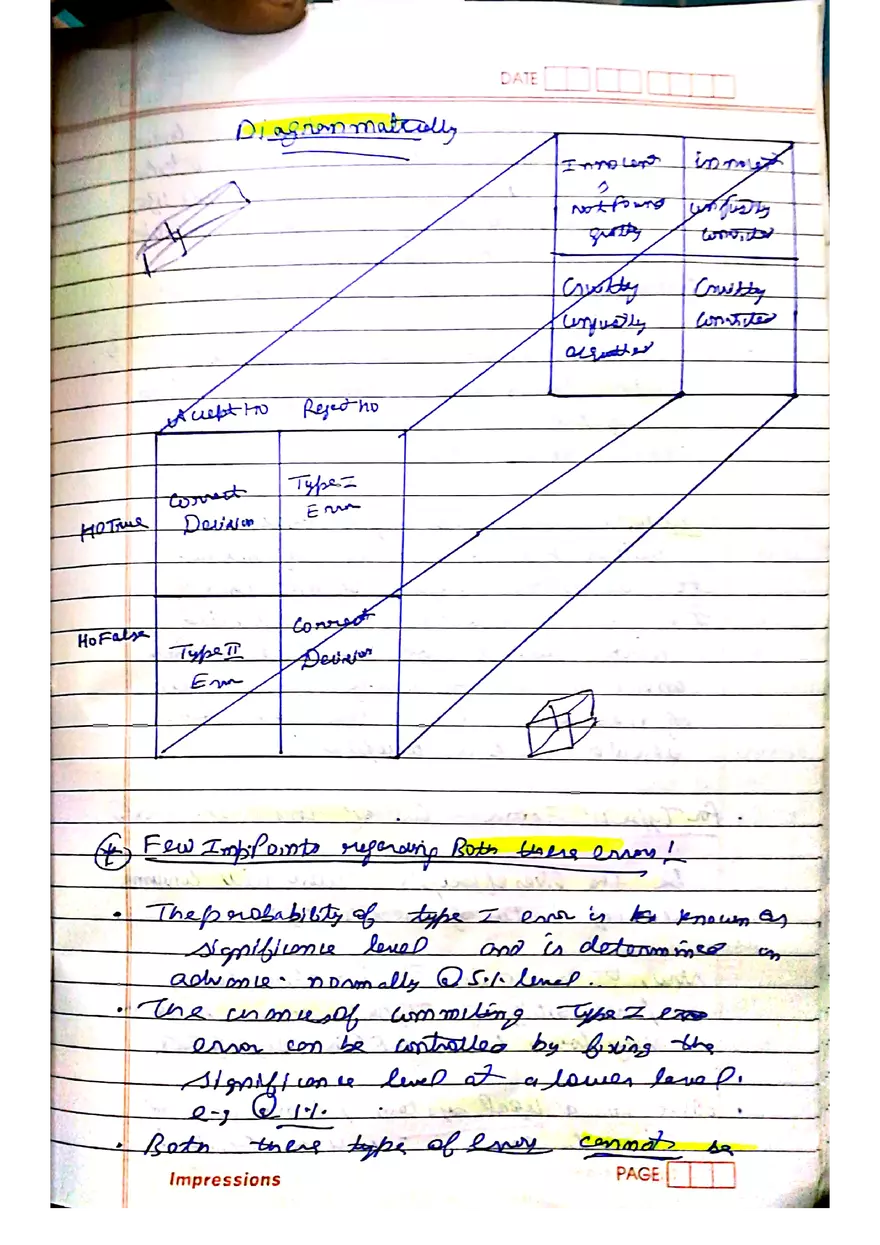 DATE
Diagrammatically
Innocent
not found
guilty
innocent
unjustly
convicted
Guilty
unjustly
acquitted
Guilty
convicted
Accept Ho
Reject Ho
Ho True
Correct
Decision
Type I
Error
Ho False
Type II
Error
Correct
Decision
Few Imp. Points regarding Both these errors!
• The probability of type I error is known as
significance level and is determined in
advance. normally @ 5.1. level.
• The chances of commiting Type I
error can be controlled by fixing the
significance level at a lower level.
e-g @ 1.1.
• Both these type of errors cannot be
Impressions
PAGE